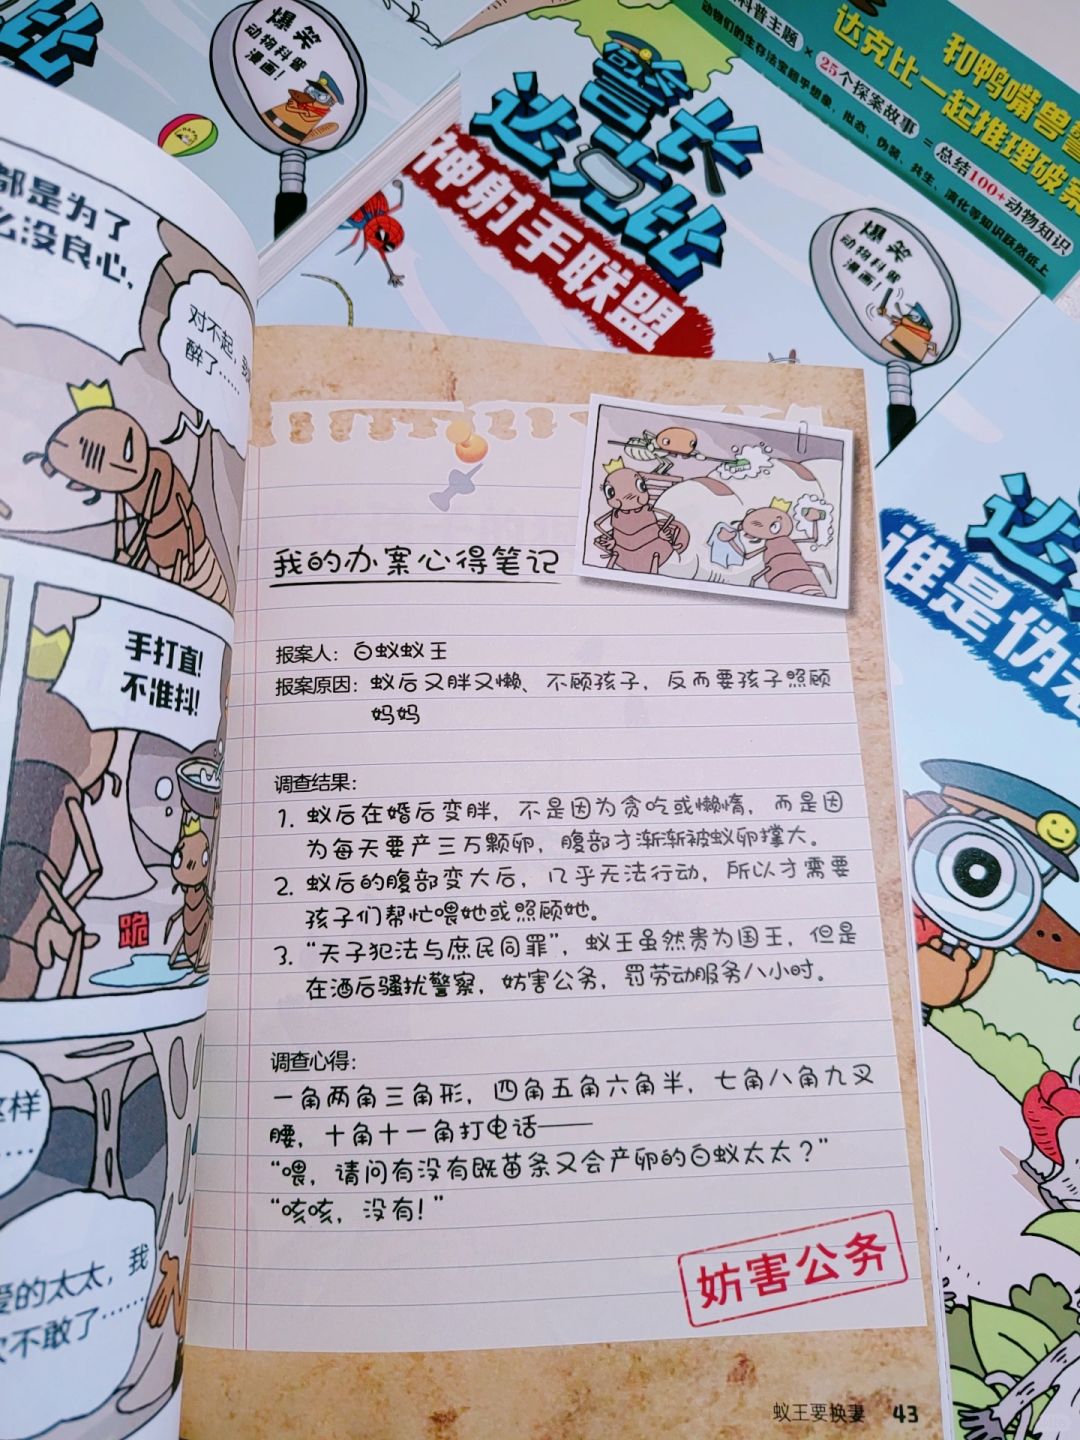 爆笑
动物科普
漫画！
警长
达克比
神射手联盟
科普主题 × 25个探案故事 = 总结100+动物知识
动物们的生存法宝超乎想象，拟态、伪装、共生、演化等知识跃然纸上
和鸭嘴兽警
达克比一起推理破案
爆笑
动物科普
漫画！
谁是伪
都是为了
么没良心，
对不起，
醉了……
手打直！
不准抖！
跪
这样
……
爱的太太，我
次不敢了……
我的办案心得笔记
报案人：白蚁蚁王
报案原因：蚁后又胖又懒、不顾孩子，反而要孩子照顾
妈妈
调查结果：
1. 蚁后在婚后变胖，不是因为贪吃或懒惰，而是因
为每天要产三万颗卵，腹部才渐渐被蚁卵撑大。
2. 蚁后的腹部变大后，几乎无法行动，所以才需要
孩子们帮忙喂她或照顾她。
3. “天子犯法与庶民同罪”，蚁王虽然贵为国王，但是
在酒后骚扰警察，妨害公务，罚劳动服务八小时。
调查心得：
一角两角三角形，四角五角六角半，七角八角九叉
腰，十角十一角打电话——
“喂，请问有没有既苗条又会产卵的白蚁太太？”
“咳咳，没有！”
妨害公务
蚁王要换妻 43